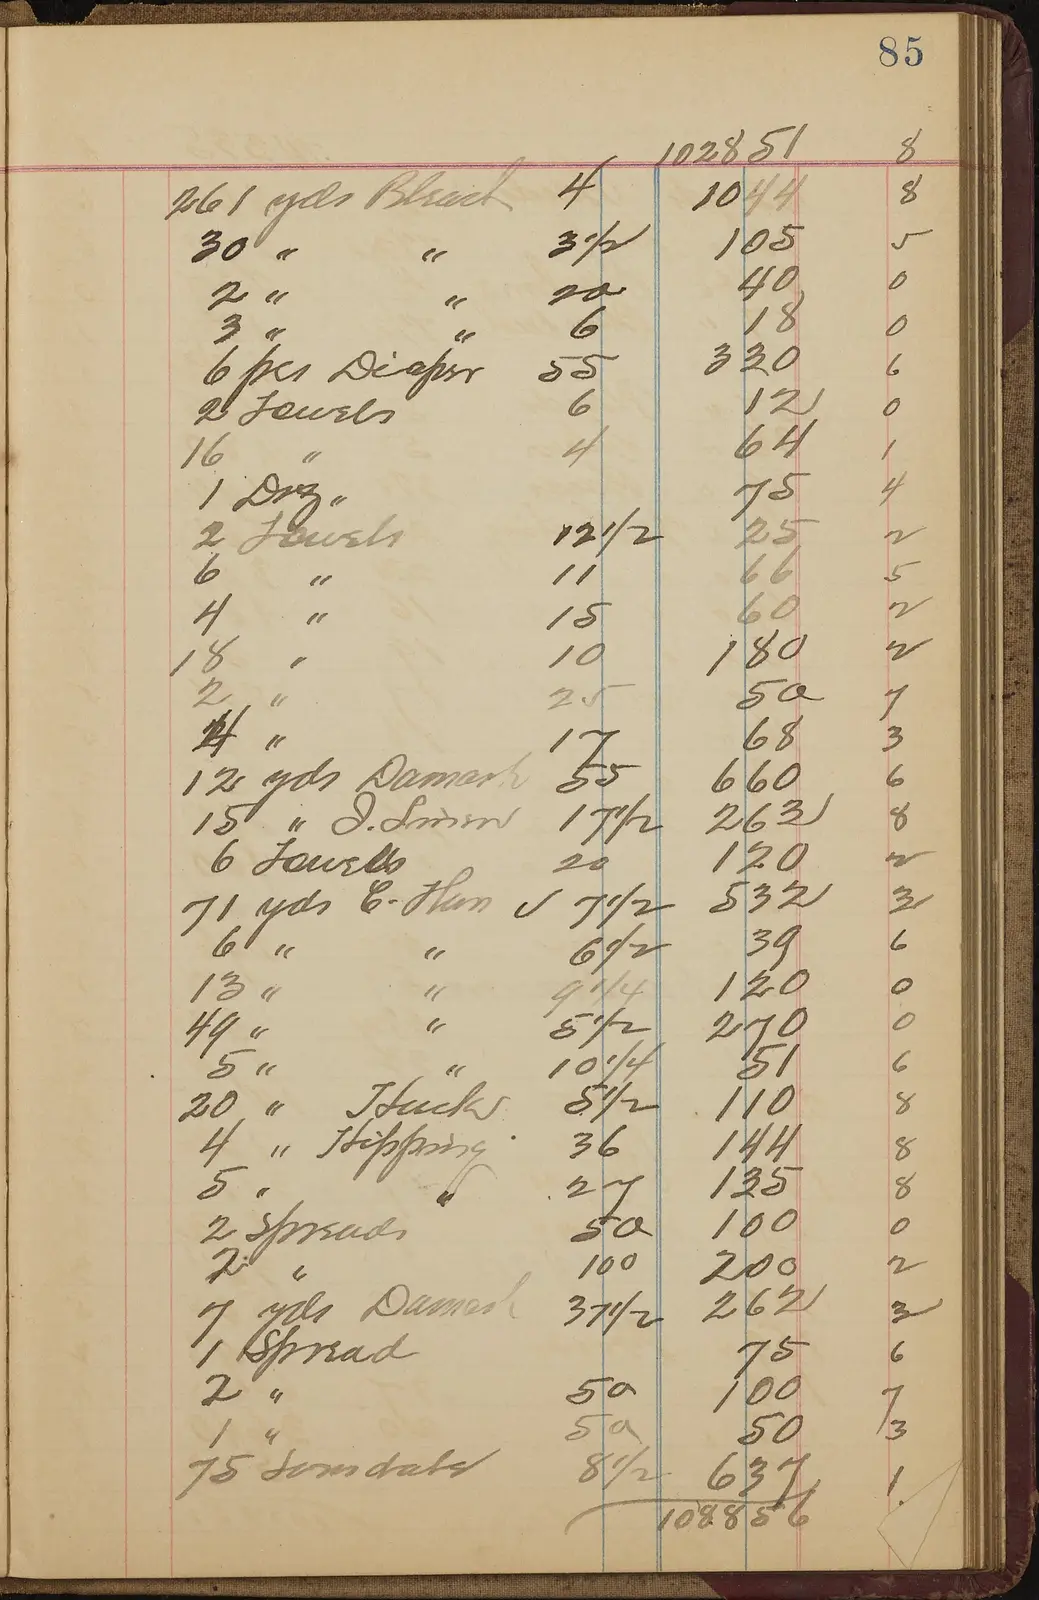 85
102851 8
261 yds Bleach 4 1044 8
30 " " 3 1/2 105 5
2 " " 20 40 0
3 " " 6 18 0
6 pcs Diaper 55 330 6
2 Towels 6 12 0
16 " 4 64 1
1 Doz " 75 4
2 Towels 12 1/2 25 2
6 " 11 66 5
4 " 15 60 2
18 " 10 180 2
2 " 25 50 7
4 " 17 68 3
12 yds Damask 55 660 6
15 " 17 1/2 263 8
6 Towels 20 120 2
71 yds C. ✓ 7 1/2 532 3
6 " " 6 1/2 39 6
13 " " 9 1/4 120 0
49 " " 5 1/2 270 0
5 " " 10 1/4 51 6
20 " Huck 5 1/2 110 8
4 " 36 144 8
5 " " 27 135 8
2 Spreads 50 100 0
2 " 100 200 2
7 yds Damask 37 1/2 262 3
1 Spread 75 6
2 " 50 100 7
1 " 50 50 3
75 Lonsdale 8 1/2 637 1
108856